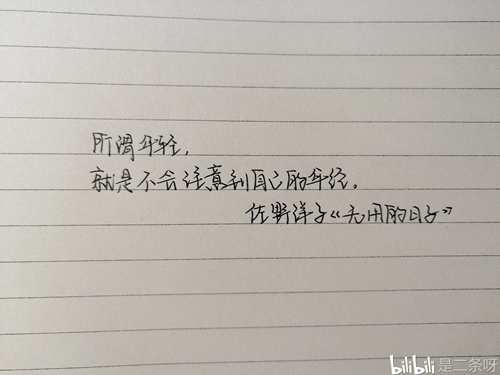 所谓年轻,
就是不会注意到自己的年轻。
佐野洋子《无用的日子》
bilibili 是二条呀